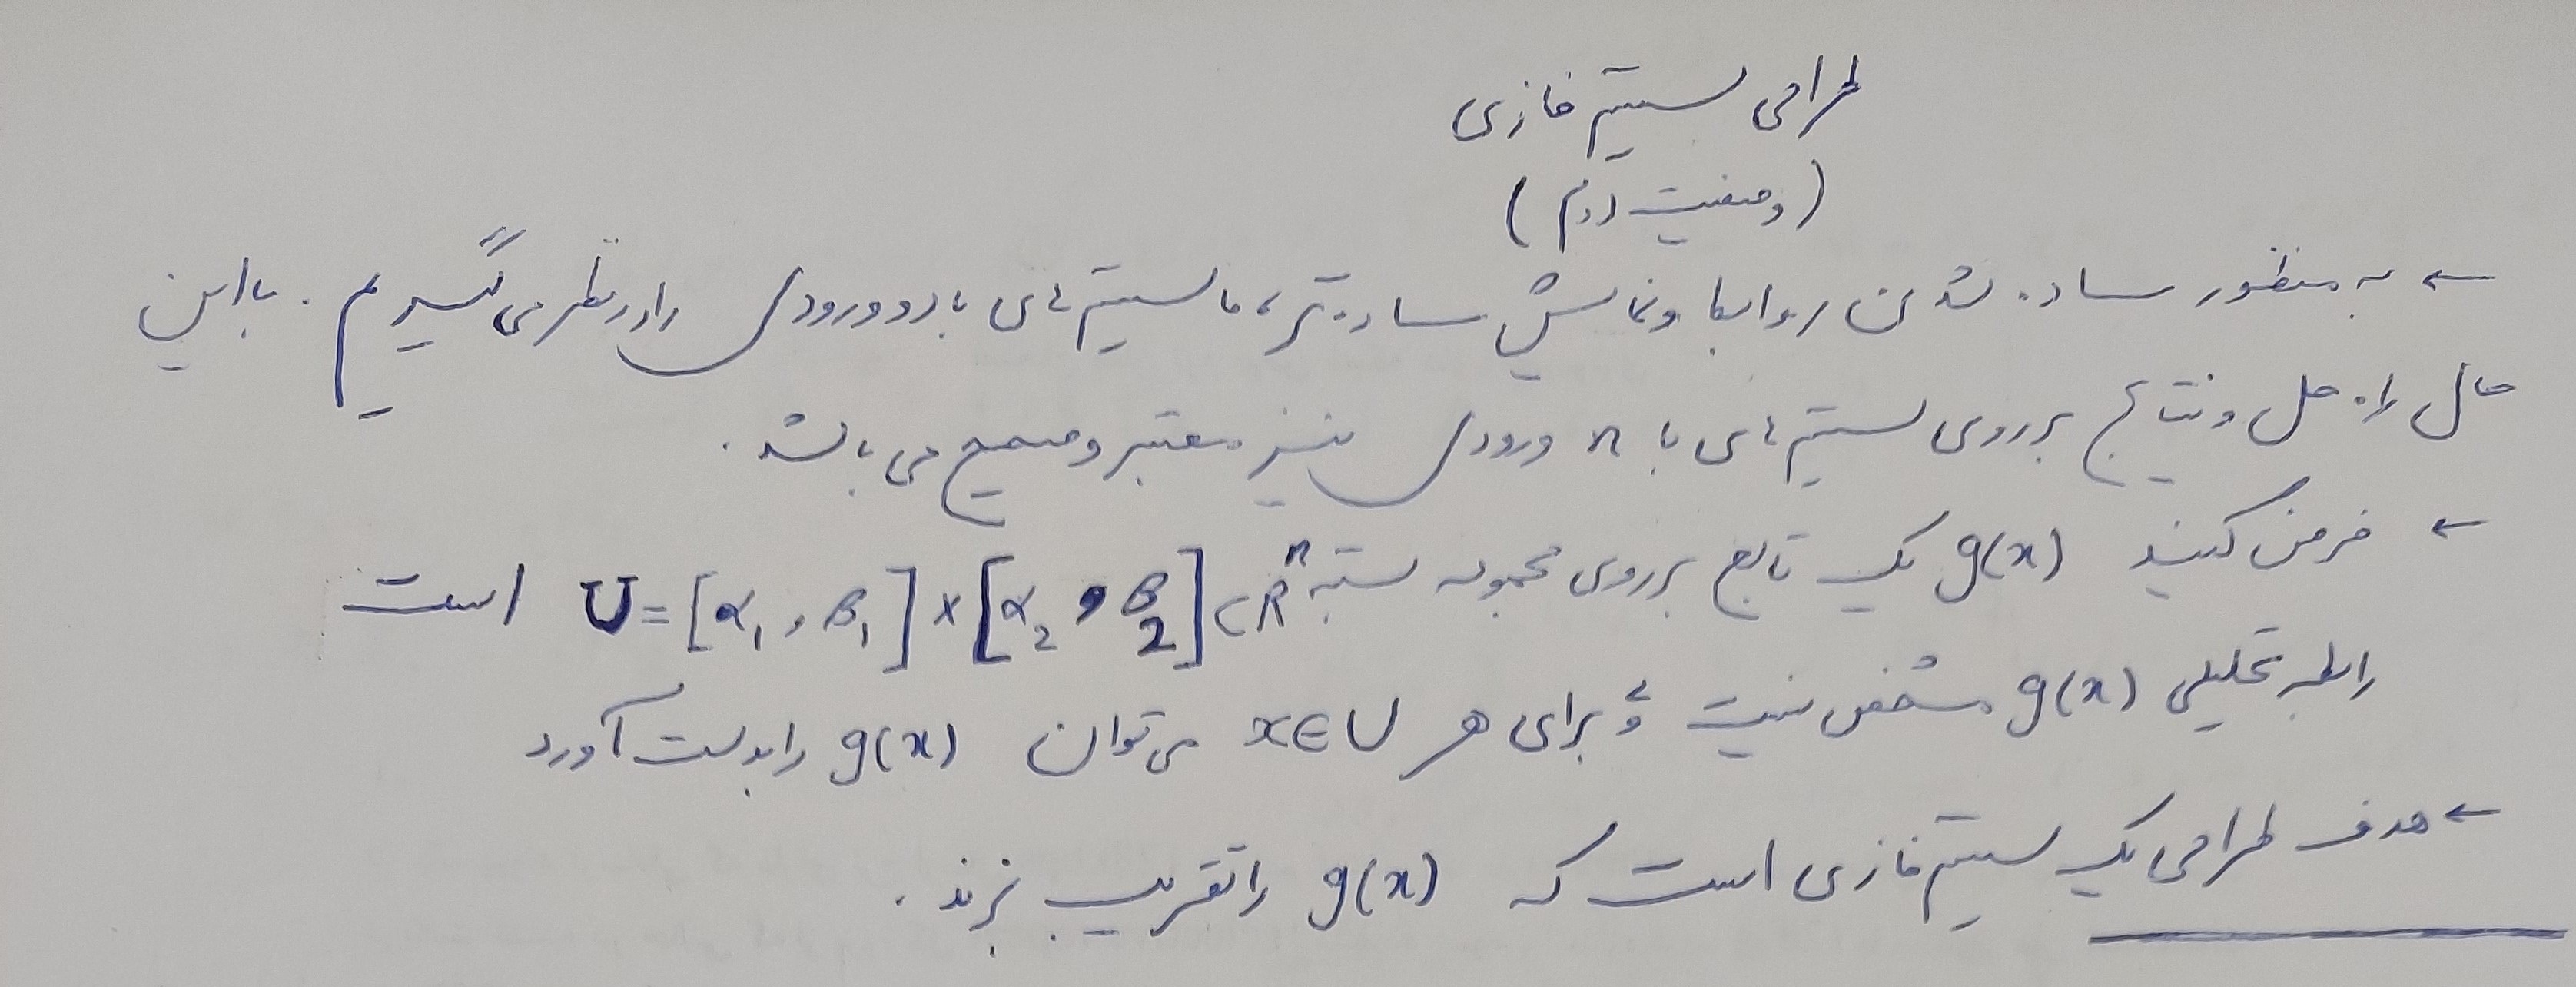 طراحی سیستم فازی
(وضعیت دوم)
← به منظور ساده شدن روابط و نمایش ساده تر، ما سیستم های با دو ورودی را در نظر می گیریم. با این
حال راه حل و نتایج بر روی سیستم های با n ورودی نیز معتبر و صحیح می باشد.
← فرض کنید g(x) یک تابع بر روی مجموعه بسته U = [α₁, β₁] × [α₂, β₂] ⊂ Rⁿ است
رابطه تحلیلی g(x) مشخص نیست و برای هر x∈U می توان g(x) را بدست آورد
← هدف طراحی یک سیستم فازی است که g(x) را تقریب بزند.